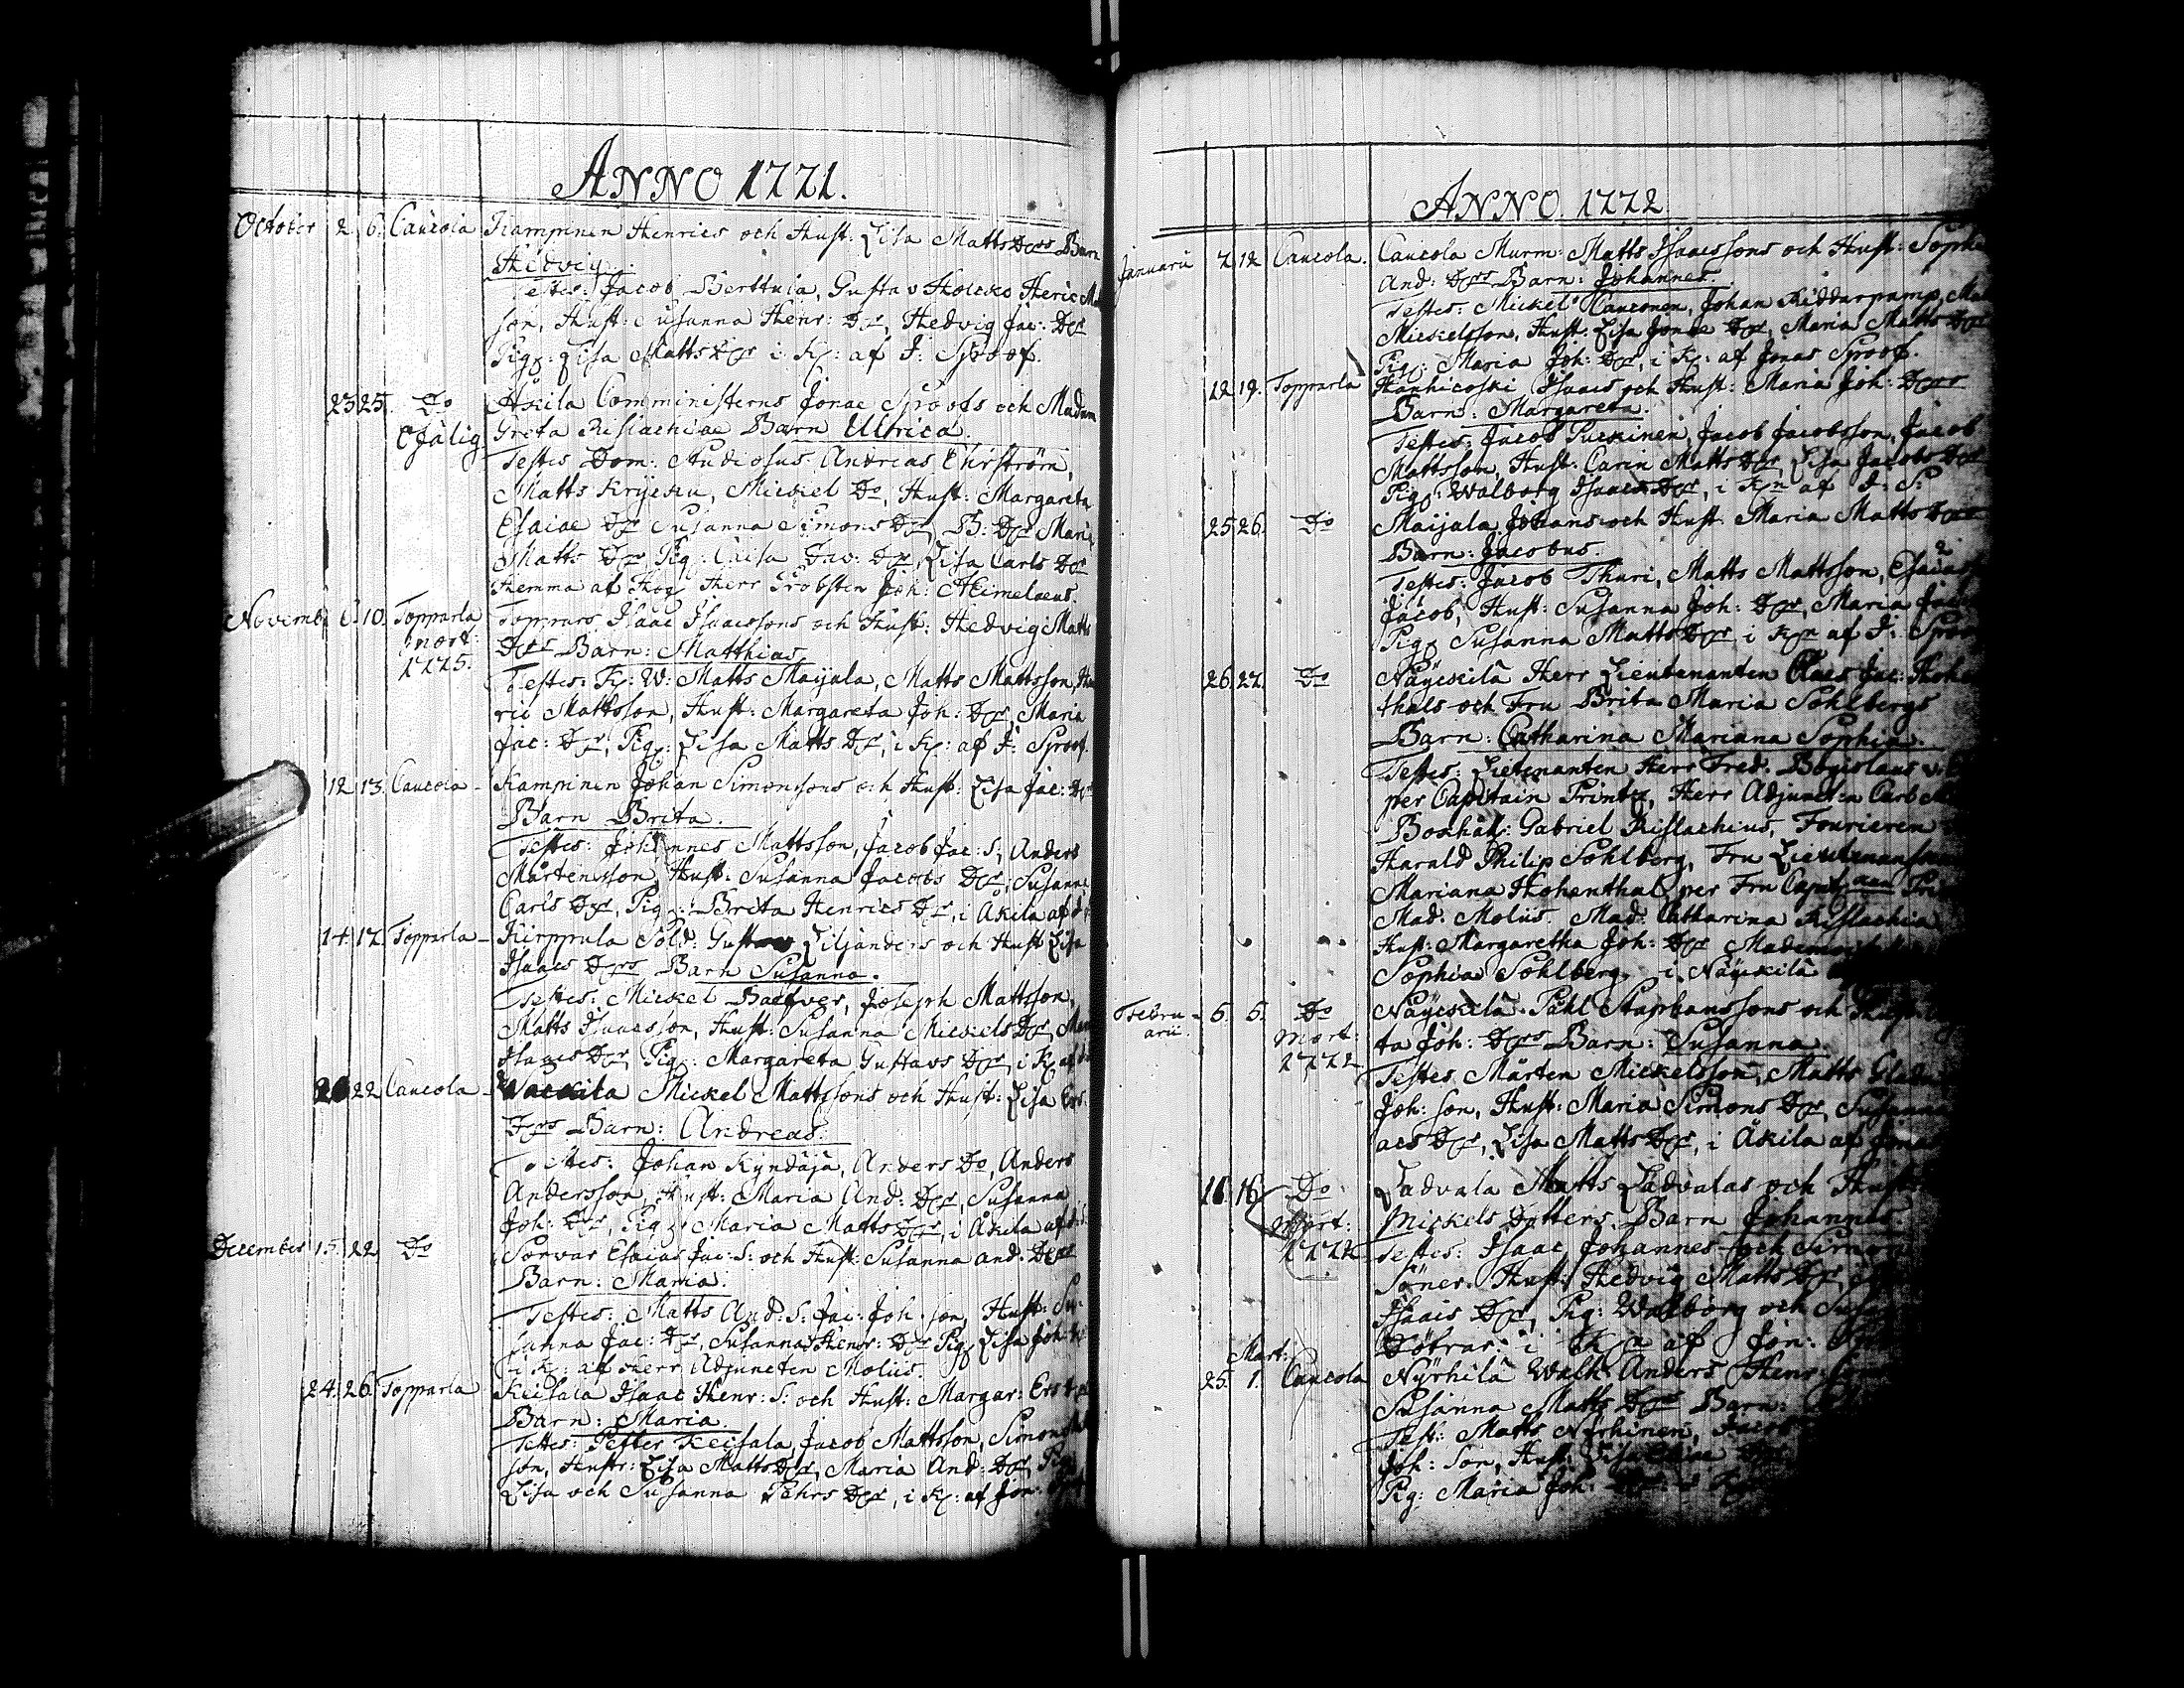 ANNO 1771.
October 2. 6. Caucola Kampinen Henrics och Hust: Lisa Matts Dotrs Barn
Hedvig.
Testes: Jacob Berttuia, Gustav Holcko Heric
son, Hust: Susanna Henr: Dr, Hedvig Jac: Dr
Pig: Lisa Matts Dr i K: af J: Sproof.
23 25. Do Åkila Comministerns Jonae Sproofs och Madam
Ofälig Greta Rislachiae Barn Ulrica.
Testes Dom: Studiosus Andreas Ehrström,
Matts Krycku, Mickel Do, Hust: Margareta
Esaiae Dr Susanna Simons Dr, B: Dr Maria
Matts Dr Pig: Caisa Dav: Dr, Lisa Carls Dr
Hemma af Hög Herr Probsten Joh: Heimelaeus.
Novemb: 6. 10. Topparla Topprars Isaac Isaacssons och Hust: Hedvig Matts
mort: Drs Barn: Matthias
1775. Testes: K: W: Matts Maijala, Matts Mattsson, Hen
ric Mattsson, Hust: Margareta Joh: Dr, Maria
Jac: Dr, Pig: Lisa Matts Dr, i K: af J: Sproof.
12. 13. Caucola - Kampinen Johan Simonssons och Hust: Lisa Jac: Drs
Barn Brita.
Testes: Johannes Mattsson, Jacob Jac: S:, Anders
Mårtensson, Hust: Susanna Jacobs Dr, Susanna
Carls Dr, Pig: Brita Henrics Dr, i Åkila af
14. 17. Topparla - Kirppula Sold: Gustav Liljanders och Hust Lisa
Isaacs Drs Barn Susanna.
Testes: Mickel Baefver, Joseph Mattsson,
Matts Isaacsson, Hust: Susanna Mickels Dr,
Isaacs Dr, Pig: Margareta Gustavs Dr, i K: af
22 Caucola - Wackila Mickel Mattssons och Hust: Lisa
Drs Barn: Andreas.
Testes: Johan Kyndäjä, Anders Do, Anders
Andersson, Hust: Maria And: Dr, Susanna
Joh: Dr, Pig: Maria Matts Dr, i Åkila af
December 15. 22 Do Sorvar Esaias Jac: S: och Hust: Susanna And: Drs
Barn: Maria.
Testes: Matts And: S: Jac: Joh: son, Hust: Su-
sanna Jac: Dr, Susanna Henr: Dr Pig: Lisa Joh:
i K: af Herr Adjuncten Moliis.
24. 26. Topparla Keisala Isaac Henr: S: och Hust: Margar:
Barn: Maria.
Testes: Petter Keisala, Jacob Mattsson, Simon
son, Hustr: Lisa Matts Dr, Maria And: Dr, Pig
Lisa och Susanna Pehrs Dr, i K: af Jon:
ANNO 1772
Januarii 7. 12 Caucola. Caucola Murm: Matts Isaacssons och Hust: Sophi
And: Drs Barn: Johannes.
Testes: Mickel Cauconen, Johan Riddarpamp,
Mickelsson, Hust: Lisa Jonae Dr, Maria Matts Dr
Pig: Maria Joh: Dr, i K: af Jonas Sproof.
12 19. Topparla Hanhicoski Isaacs och Hust: Maria Joh: Drs
Barn: Margareta.
Testes: Jacob Purkinen, Jacob Jacobsson, Jacob
Mattsson, Hust: Carin Matts Dr, Lisa Jacobs Dr
Pig: Walborg Isaacs Dr, i K: af J: S:
25 26. Do Maijala Johans och Hust: Maria Matts Drs
Barn: Jacobus.
Testes: Jacob Thuri, Matts Mattsson, Esaias
Jacob, Hust: Susanna Joh: Dr, Maria
Pig Susanna Matts Dr i K: af J: Sproof
26. 27. Do Näyckilä Herr Lieutenanten Claes Jac: Hohen
thals och Fru Brita Maria Sohlbergs
Barn: Catharina Mariana Sophia.
Testes: Lieutenanten Herr Fred. Bogislaus v.
per Capitain Printz, Herr Adjuncten Carl
Boxhåll: Gabriel Rislachius, Fourieren
Harald Philip Sohlberg, Fru Lieutenanskan
Mariana Hohenthal per Fru Capit:
Mad: Moliis. Mad: Catharina Rislachia
Hust: Margaretha Joh: Dr
Sophia Sohlberg, i Näyckilä
Febru- 5. 5. Do Näyckilä Påhl Staphanssons och
arii. mort: ta Joh: Drs Barn: Susanna.
1772 Testes Mårten Mickelsson, Matts
Joh: son, Hust: Maria Simons Dr, Susanna
acs Dr, Lisa Matts Dr, i Åkila af Jonas
16 Do Ladvala Matts Ladvalas och Hust
Mort: Mickels Dotters Barn Johannes.
1772 Testes: Isaac, Johannes och Simon
Söner. Hust: Hedvig Matts Dr,
Isaacs Dr, Pig: Walborg och
Döttrar: i K: af Jon:
Mart:
25. 1. Caucola Nyrhilä Walb: Anders Henr:
Susanna Matts Drs Barn:
Test: Matts Nyrhinen, Jacob
Joh: Son, Hust: Lisa
Pig: Maria Joh: